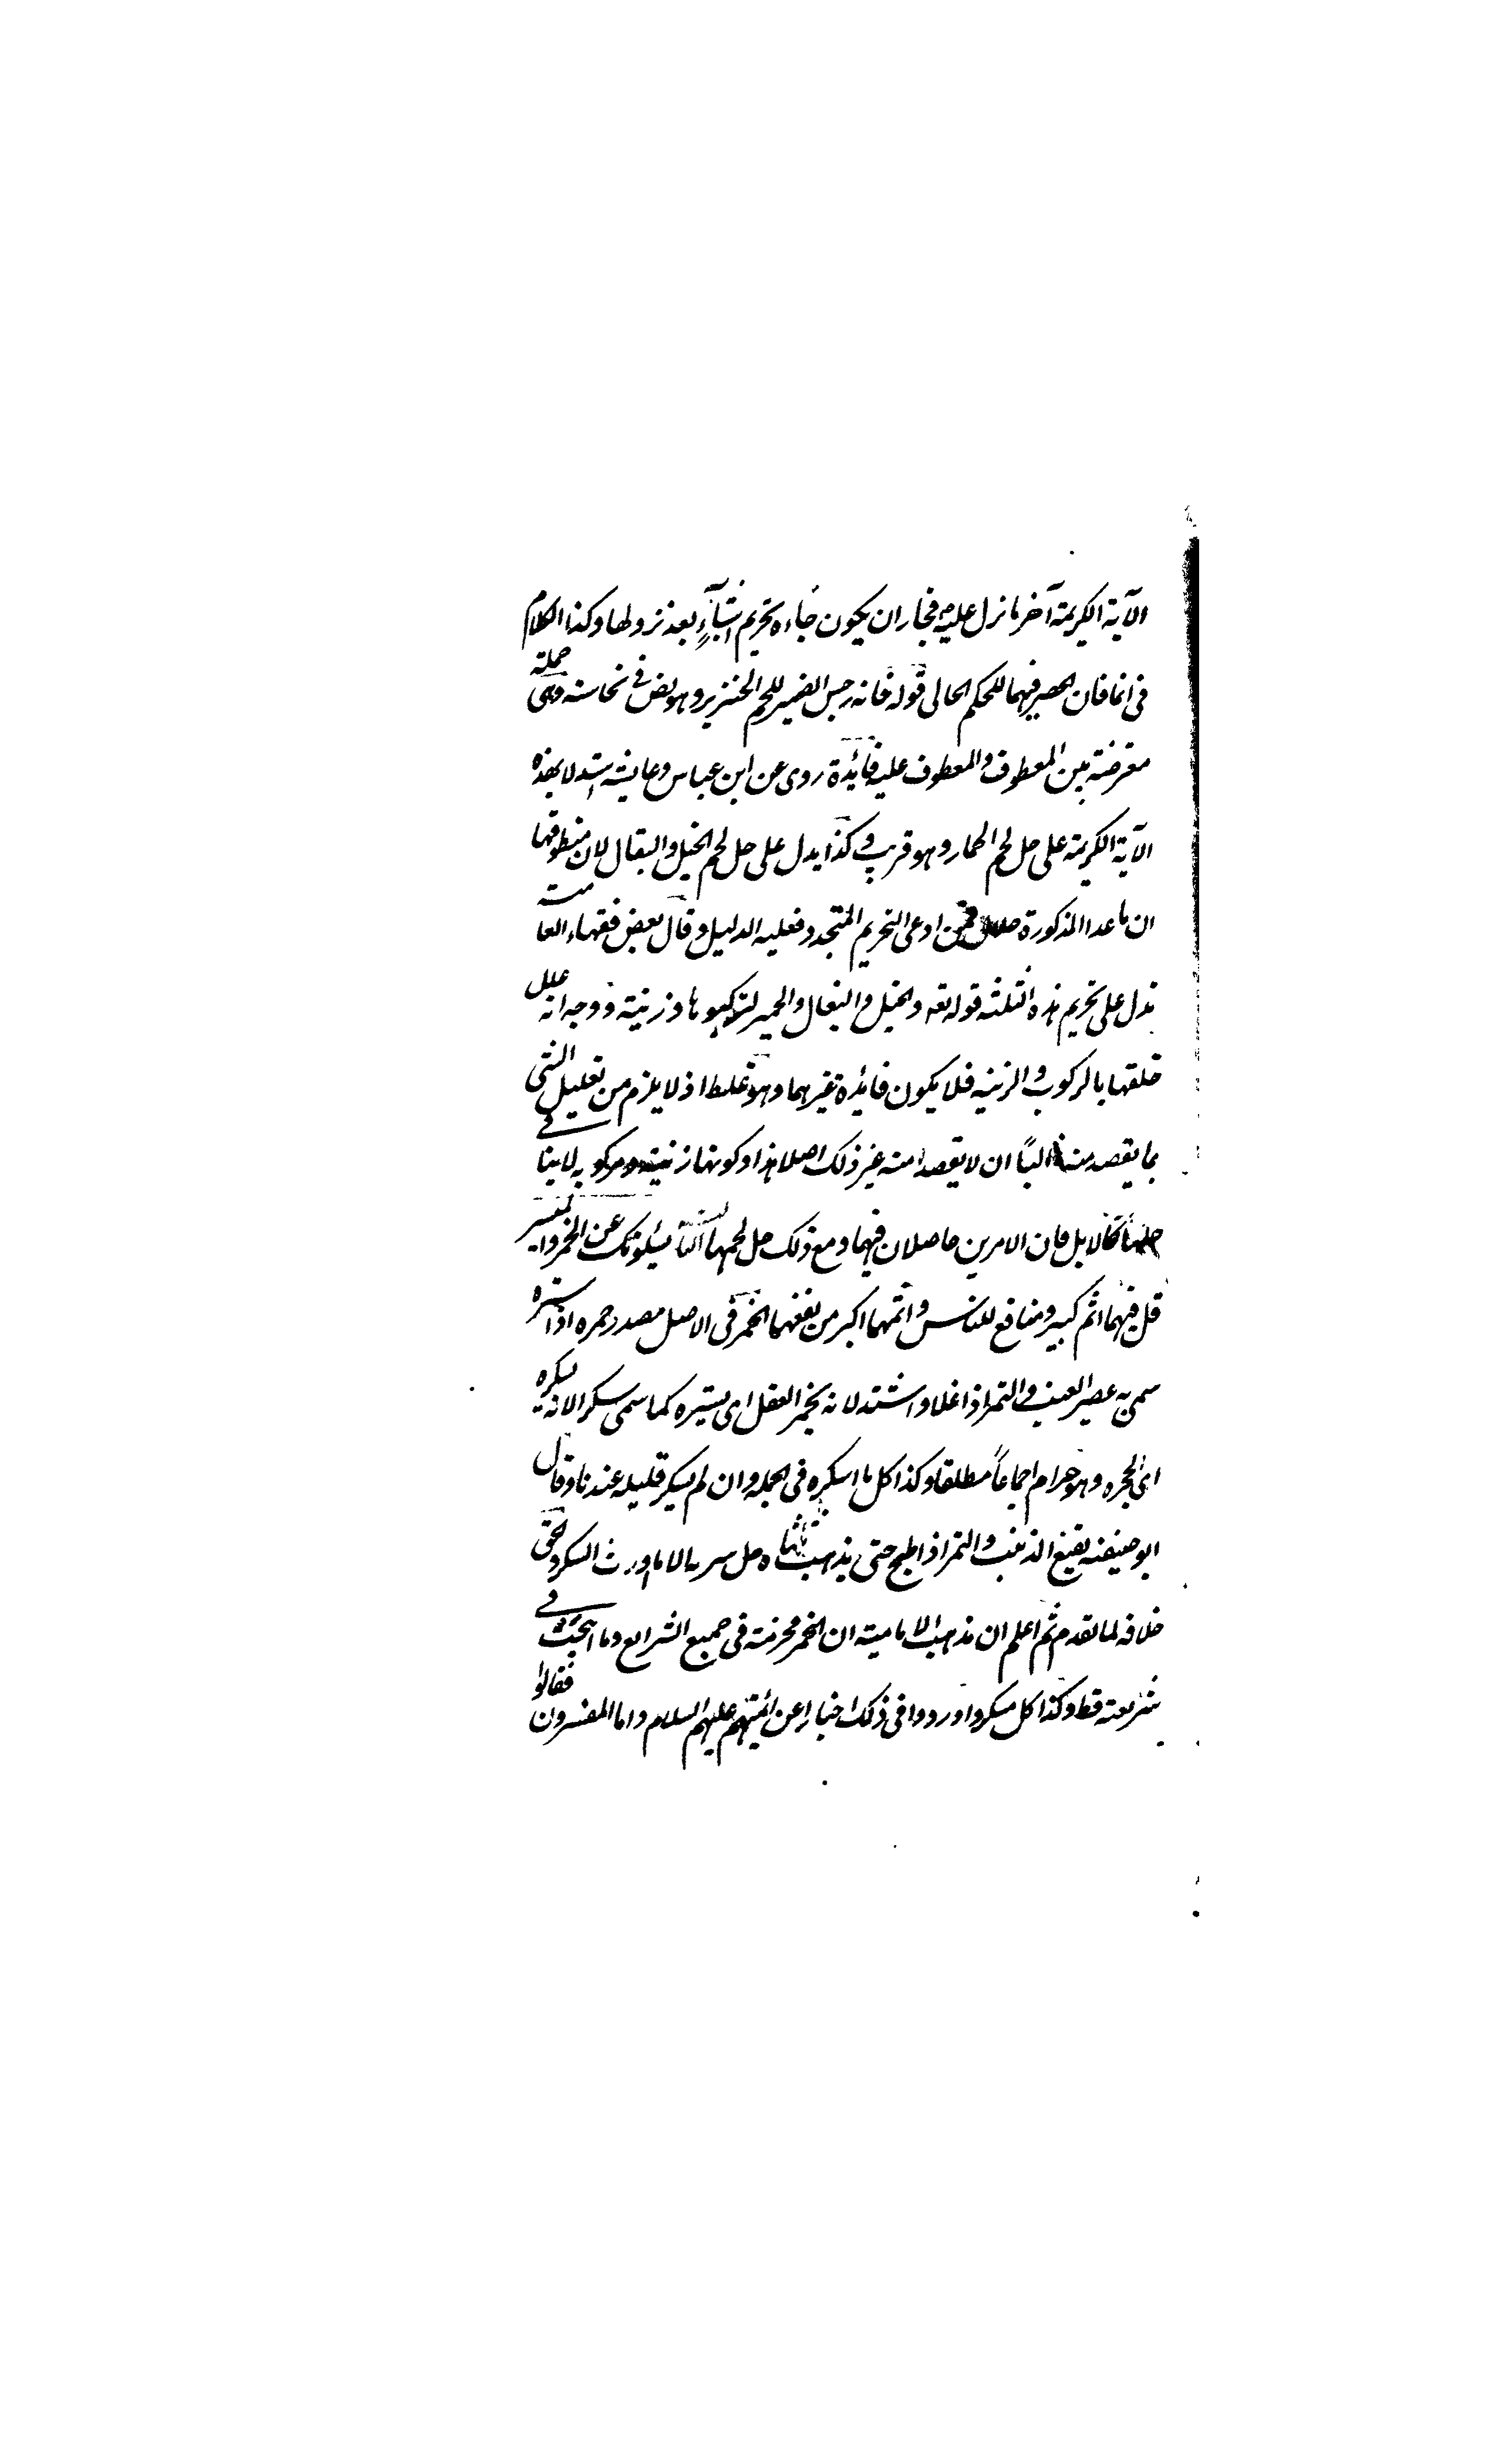 الآية الكريمة آخر ما نزل عليه فجاز ان يكون جاءه تحريم اشياء بعد نزولها وكذا الكلام
فى انما فان الحصر فيهما للحكم الحالى قوله فانه رجس الضمير للحم الخنزير وهو نص فى نجاسته وهى جملة
معترضة بين المعطوف والمعطوف عليه فائدة روى عن ابن عباس وعايشه استدلا بهذه
الآية الكريمة على حل لحم الحمار وهو قريب وكذا يدل على حل لحم الخيل والبغال لان منطوقها
ان ما عدا المذكورة حلال فمن ادعى التحريم المتجدد فعليه الدليل وقال بعض فقهاء العامة
تدل على تحريم هذه الثلثة قوله تعه والخيل والبغال والحمير لتركبوها وزينة ووجه انه علل
خلقها بالركوب والزينه فلا يكون فائدة غيرهما وهو غلط اذ لا يلزم من تعليل الشئ
بما يقصد منه غالباً ان لا يقصد منه غير ذلك اصلا هذا وكونها زينة ومركوبه لا ينافى
حلها كالابل فان الامرين حاصلان فيها ومع ذلك حل لحمها الثالثة يسئلونك عن الخمر والميسر
قل فيهما اثم كبير ومنافع للناس واثمهما اكبر من نفعهما الخمر فى الاصل مصدر خمره اذا ستره
سمى به عصير العنب والتمر اذا غلا واشتد لانه يخمر العقل اى يستره كما سمى سكرا لانه يسكره
اى يحجره وهو حرام اجماعاً مطلقا وكذا كل ما اسكره فى الجمله وان لم يسكر قليله عندنا وقال
ابو حنيفه نقيع الزبيب والتمر اذا طبخ حتى يذهب ثلثاه حل شربه الا ما اورث السكر والحق
خلافه لما تقدم ثم اعلم ان مذهب الامامية ان الخمر محرمة فى جميع الشرايع وما ابيحت فى
شريعة قط وكذا كل مسكر واوردوا فى ذلك اخبارا عن ائمتهم عليهم السلام واما المفسرون فقالوا